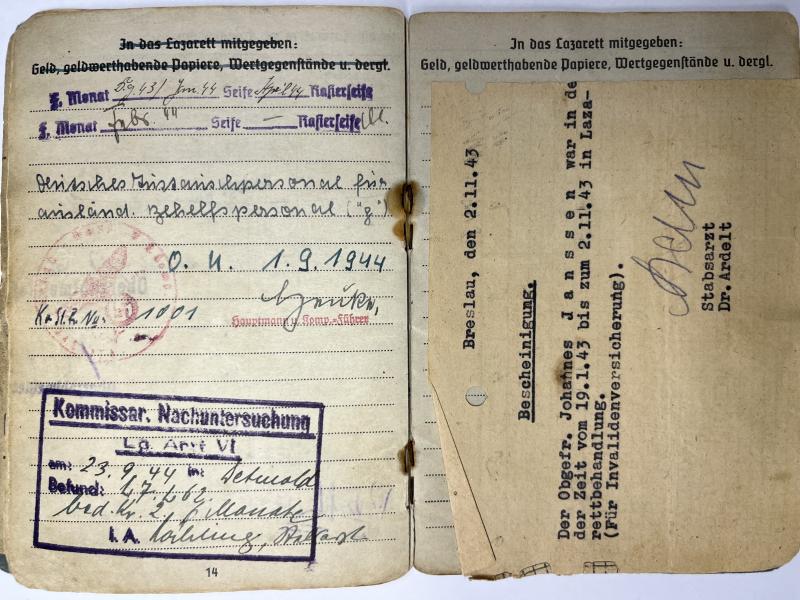 In das Lazarett mitgegeben:
Geld, geldwerthabende Papiere, Wertgegenstände u. dergl.
f. Monat 43/Jan. 44 Seife April 44 Rasierseife
f. Monat Febr. 44 Seife — Rasierseife
Deutsches Austauschpersonal für
ausländ. Behelfspersonal ("g").
O. U. 1.9.1944
Hauptmann u. Komp.-Führer
K.St.N. No. 1001
Kommissar. Nachuntersuchung
Lg. Arzt VI
am: 23.9.44 in: Detmold
Befund:
bed. Kr. 2, 6 Monate
I. A.
14
In das Lazarett mitgegeben:
Geld, geldwerthabende Papiere, Wertgegenstände u. dergl.
Breslau, den 2.11.43
Bescheinigung.
Der Obgefr. Johannes J a n s s e n war in de
der Zeit vom 19.1.43 bis zum 2.11.43 in Laza-
rettbehandlung.
(Für Invalidenversicherung).
Stabsarzt
Dr. Ardelt